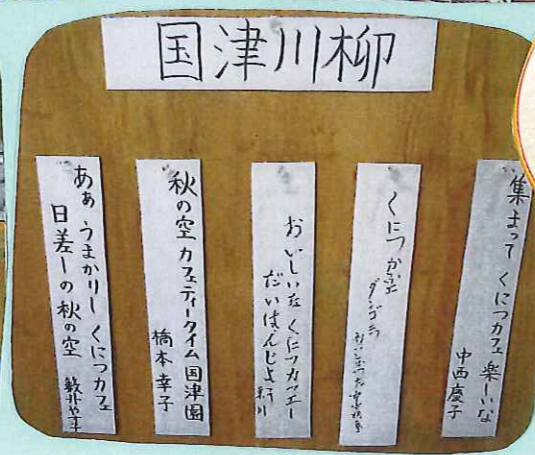 国津川柳
集まって くにつカフェ 楽しいな
中西慶子
くにつ かふぇ
おいしいな くにつカフエー
だいはんじょう
秋の空 カフェティータイム 国津園
橋本幸子
あぁ うまかりし くにつカフェ
日差しの秋の空